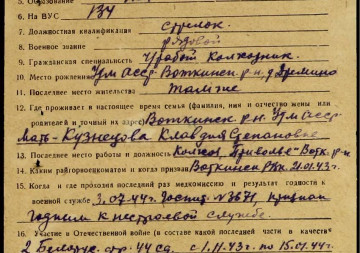 5. Образование
6. На ВУС 134
7. Должностная квалификация стрелок
8. Военное звание рядовой
9. Гражданская специальность Колхозник.
10. Место рождения Удм АССР Воткинск р-н, д
11. Последнее место жительства Там же
12. Где проживает в настоящее время семья (фамилия, имя и отчество жены или
родителей и точный их адрес) Воткинск р-н Удм АССР
Мать-Кузнецова Клавдия Степановна
13. Последнее место работы и должность Колхоз, Воткин. р-н
14. Каким райгорвоенкоматом и когда призван Воткинск РВК 21.01.43 г.
15. Когда и где проходил последний раз медкомиссию и результат годности к
военной службе 3.07.44г. госпит. №3671, признан
годным к нестроевой службе.
16. Участие в Отечественной войне (в составе какой последней части в качестве
2 Белорус. фр. 44 сд. с 1.11.43г. по 15.01.44г.